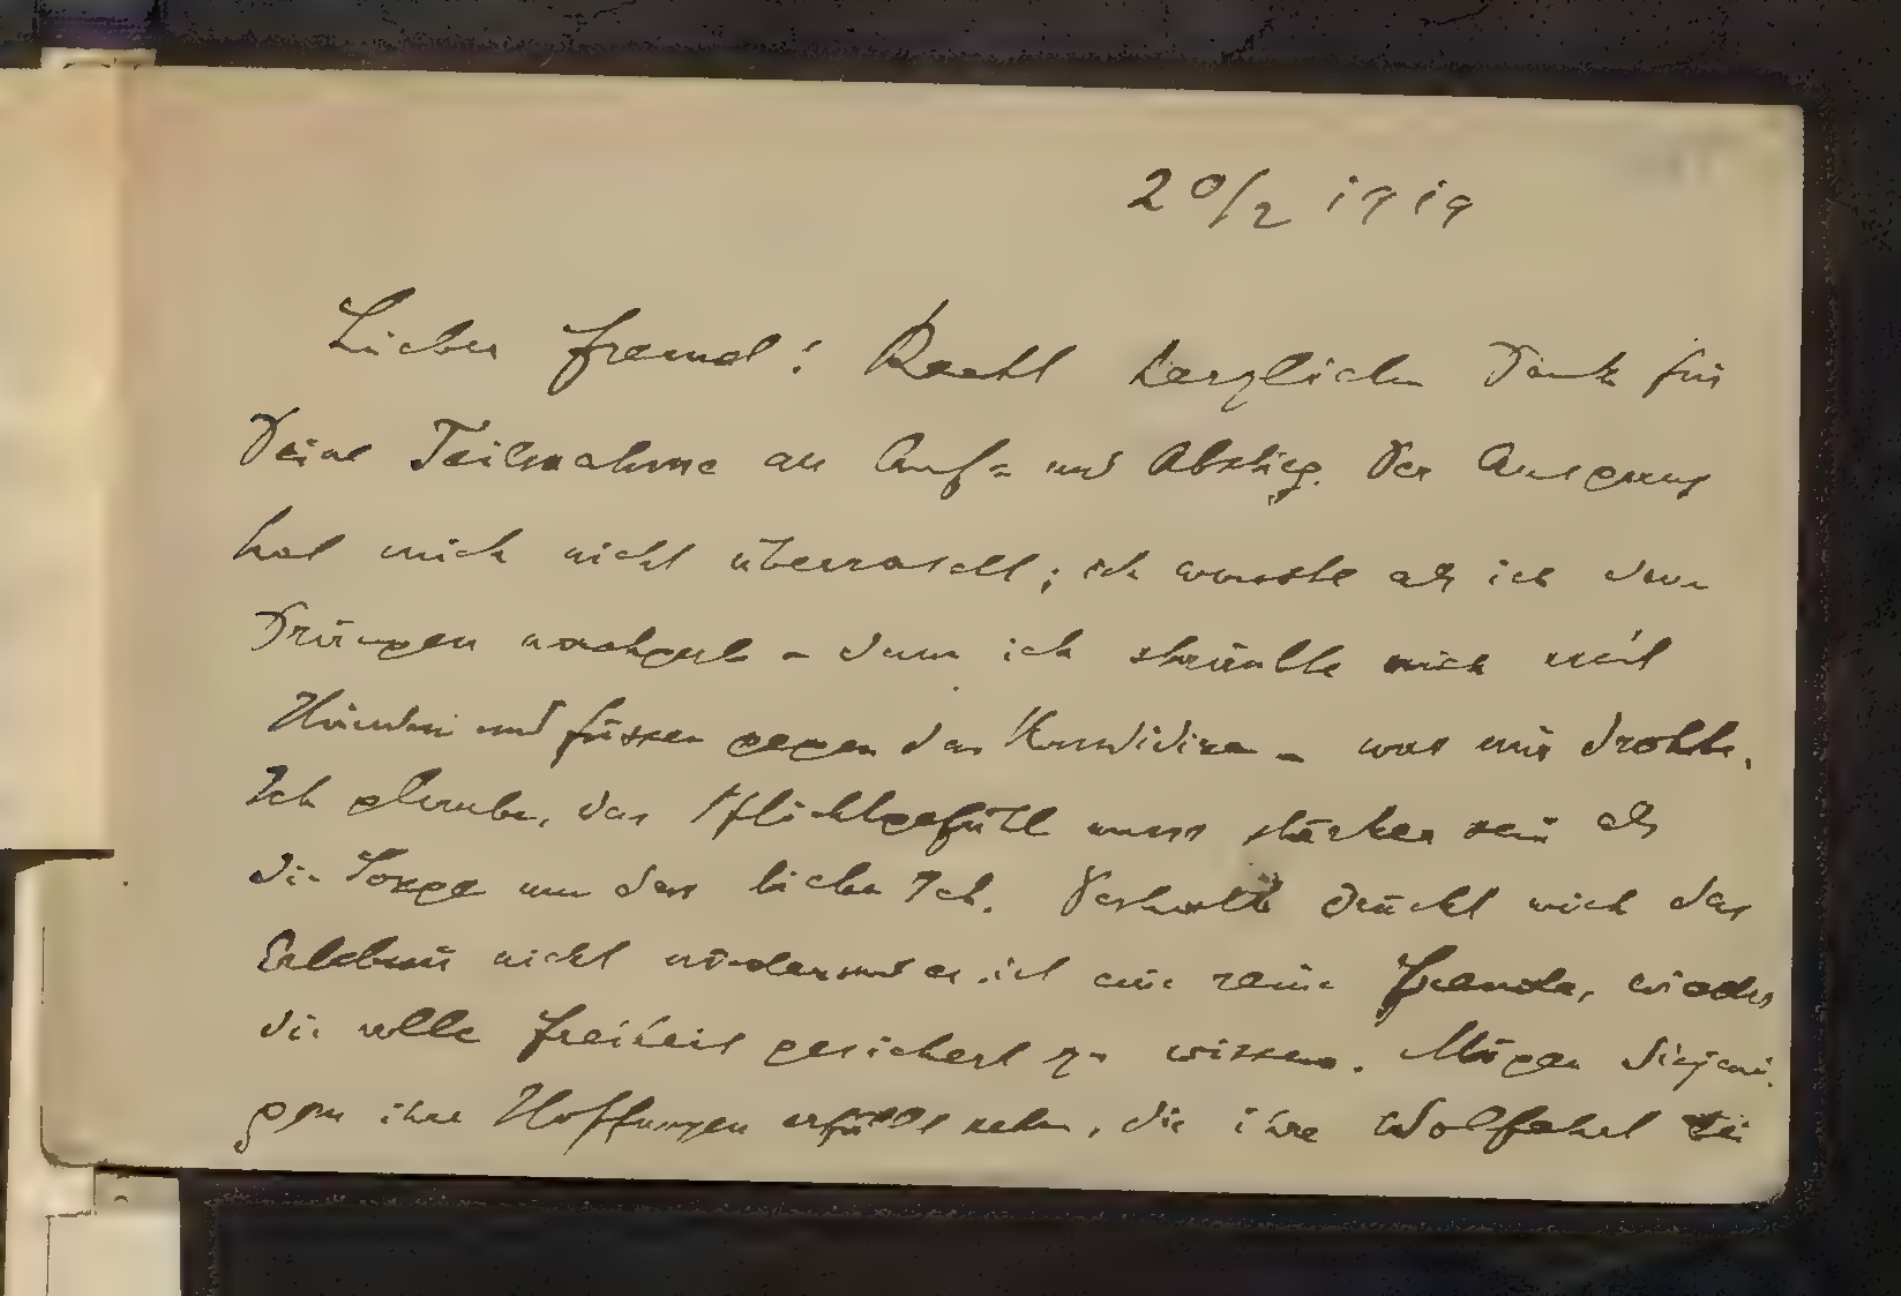 20/2 1919
Lieber Freund! Recht herzlichen Dank für
Deine Teilnahme an Auf= und Abstieg. Der Ausgang
hat mich nicht überrascht; ich wusste als ich dem
Drängen nachgab – denn ich sträubte mich mit
Händen und Füssen gegen das Kandidiren – was mir drohte.
Ich glaube, das Pflichtgefühl muss stärker sein als
die Sorge um das liebe Ich. Deshalb drückt mich das
Erlebnis nicht nieder und es ist eine reine Freude, wieder
die volle Freiheit gesichert zu wissen. Mögen diejeni-
gen ihre Hoffnungen erfüllt sehen, die ihre Wolfahrt